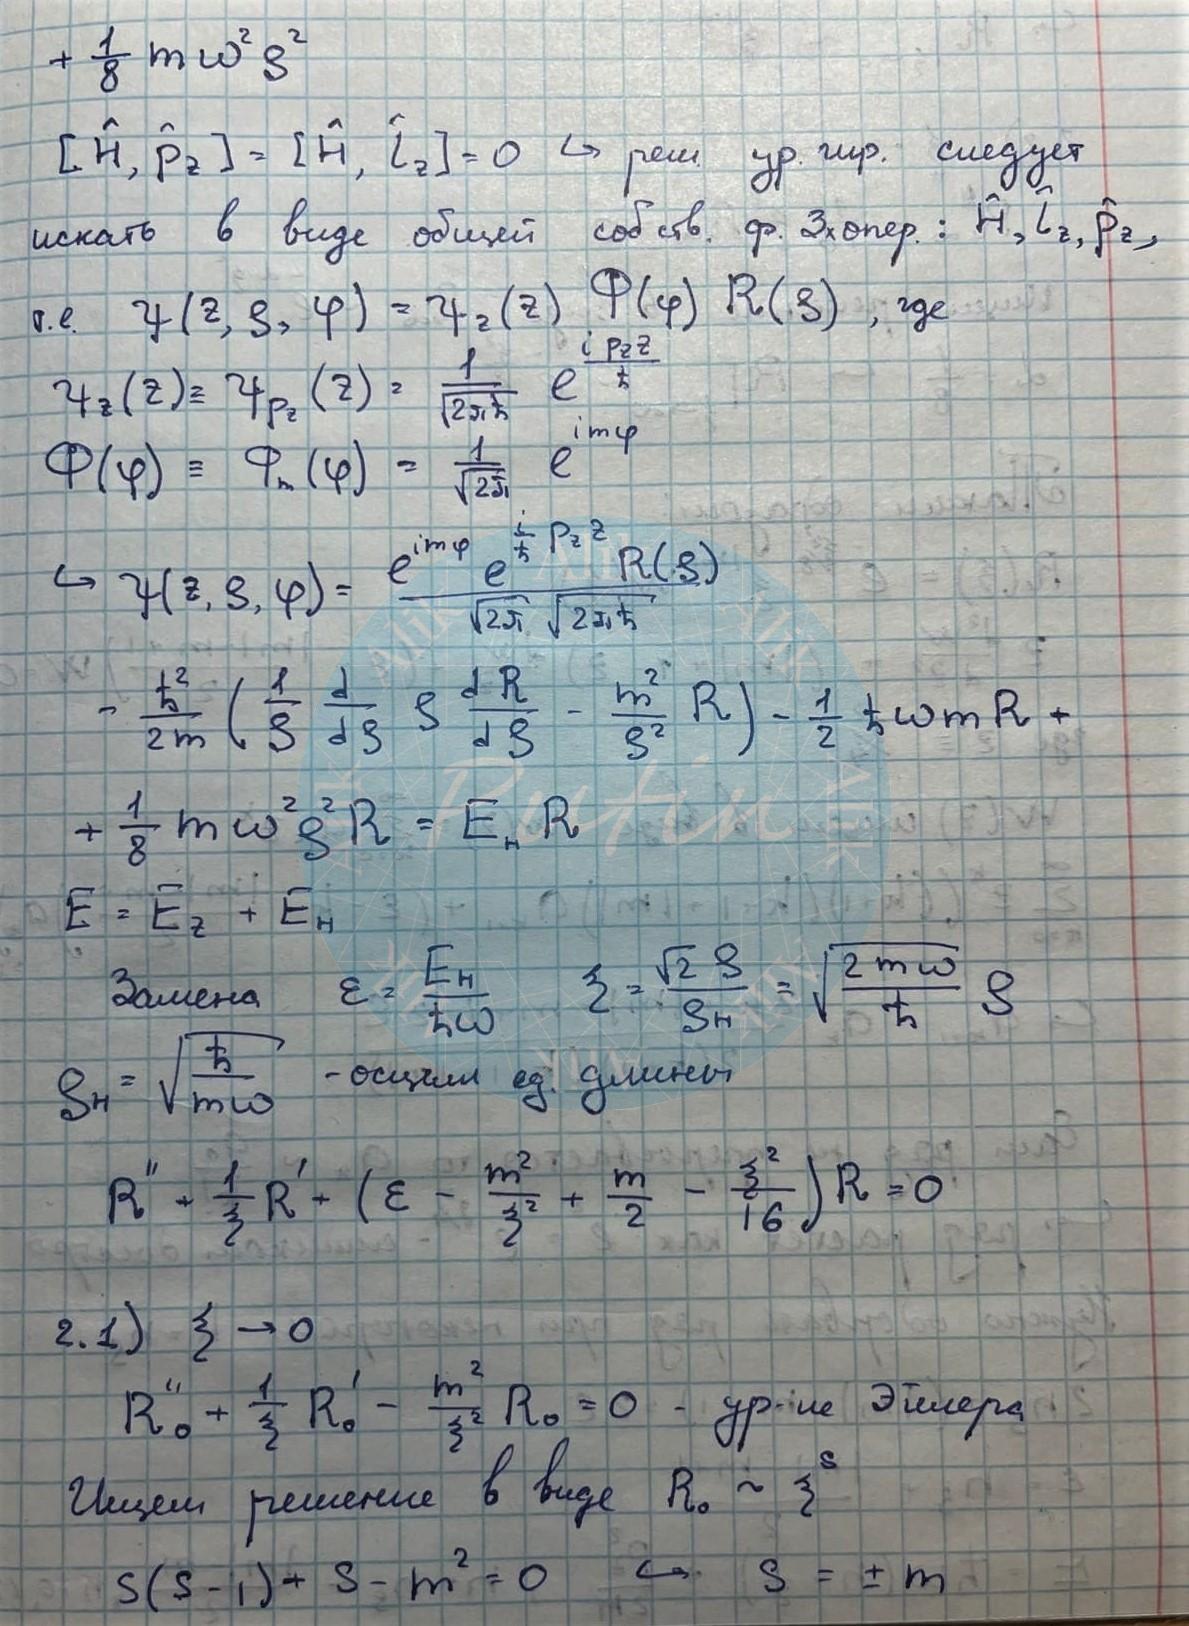 + 1/8 mω²ρ²
[Ĥ, p̂_z] = [Ĥ, L̂_z] = 0 ↪ реш. ур. шр. следует
искать в виде общей собств. ф. 3х опер.: Ĥ, L̂_z, p̂_z,
т.е. ψ(z, ρ, φ) = ψ_z(z) Φ(φ) R(ρ), где
ψ_z(z) ≡ ψ_{p_z}(z) = 1/√(2πħ) e^{i p_z z/ħ}
Φ(φ) ≡ Φ_m(φ) = 1/√(2π) e^{imφ}
↪ ψ(z, ρ, φ) = e^{imφ} e^{i/ħ p_z z} R(ρ) / (√(2π) √(2πħ))
- ħ²/2m (1/ρ d/dρ ρ dR/dρ - m²/ρ² R) - 1/2 ħωmR +
+ 1/8 mω²ρ²R = E_н R
E = E_z + E_н
Замена ε = E_н/ħω ξ = √2 ρ/ρ_н = √(2mω/ħ) ρ
ρ_н = √(ħ/mω) - осцилл ед. длины
R'' + 1/ξ R' + (ε - m²/ξ² + m/2 - ξ²/16) R = 0
2.1) ξ → 0
R₀'' + 1/ξ R₀' - m²/ξ² R₀ = 0 - ур-ие Эйлера
Ищем решение в виде R₀ ~ ξ^s
s(s-1) + s - m² = 0 ↪ s = ± m
Alik
Alik
Alik
Alik
Putin